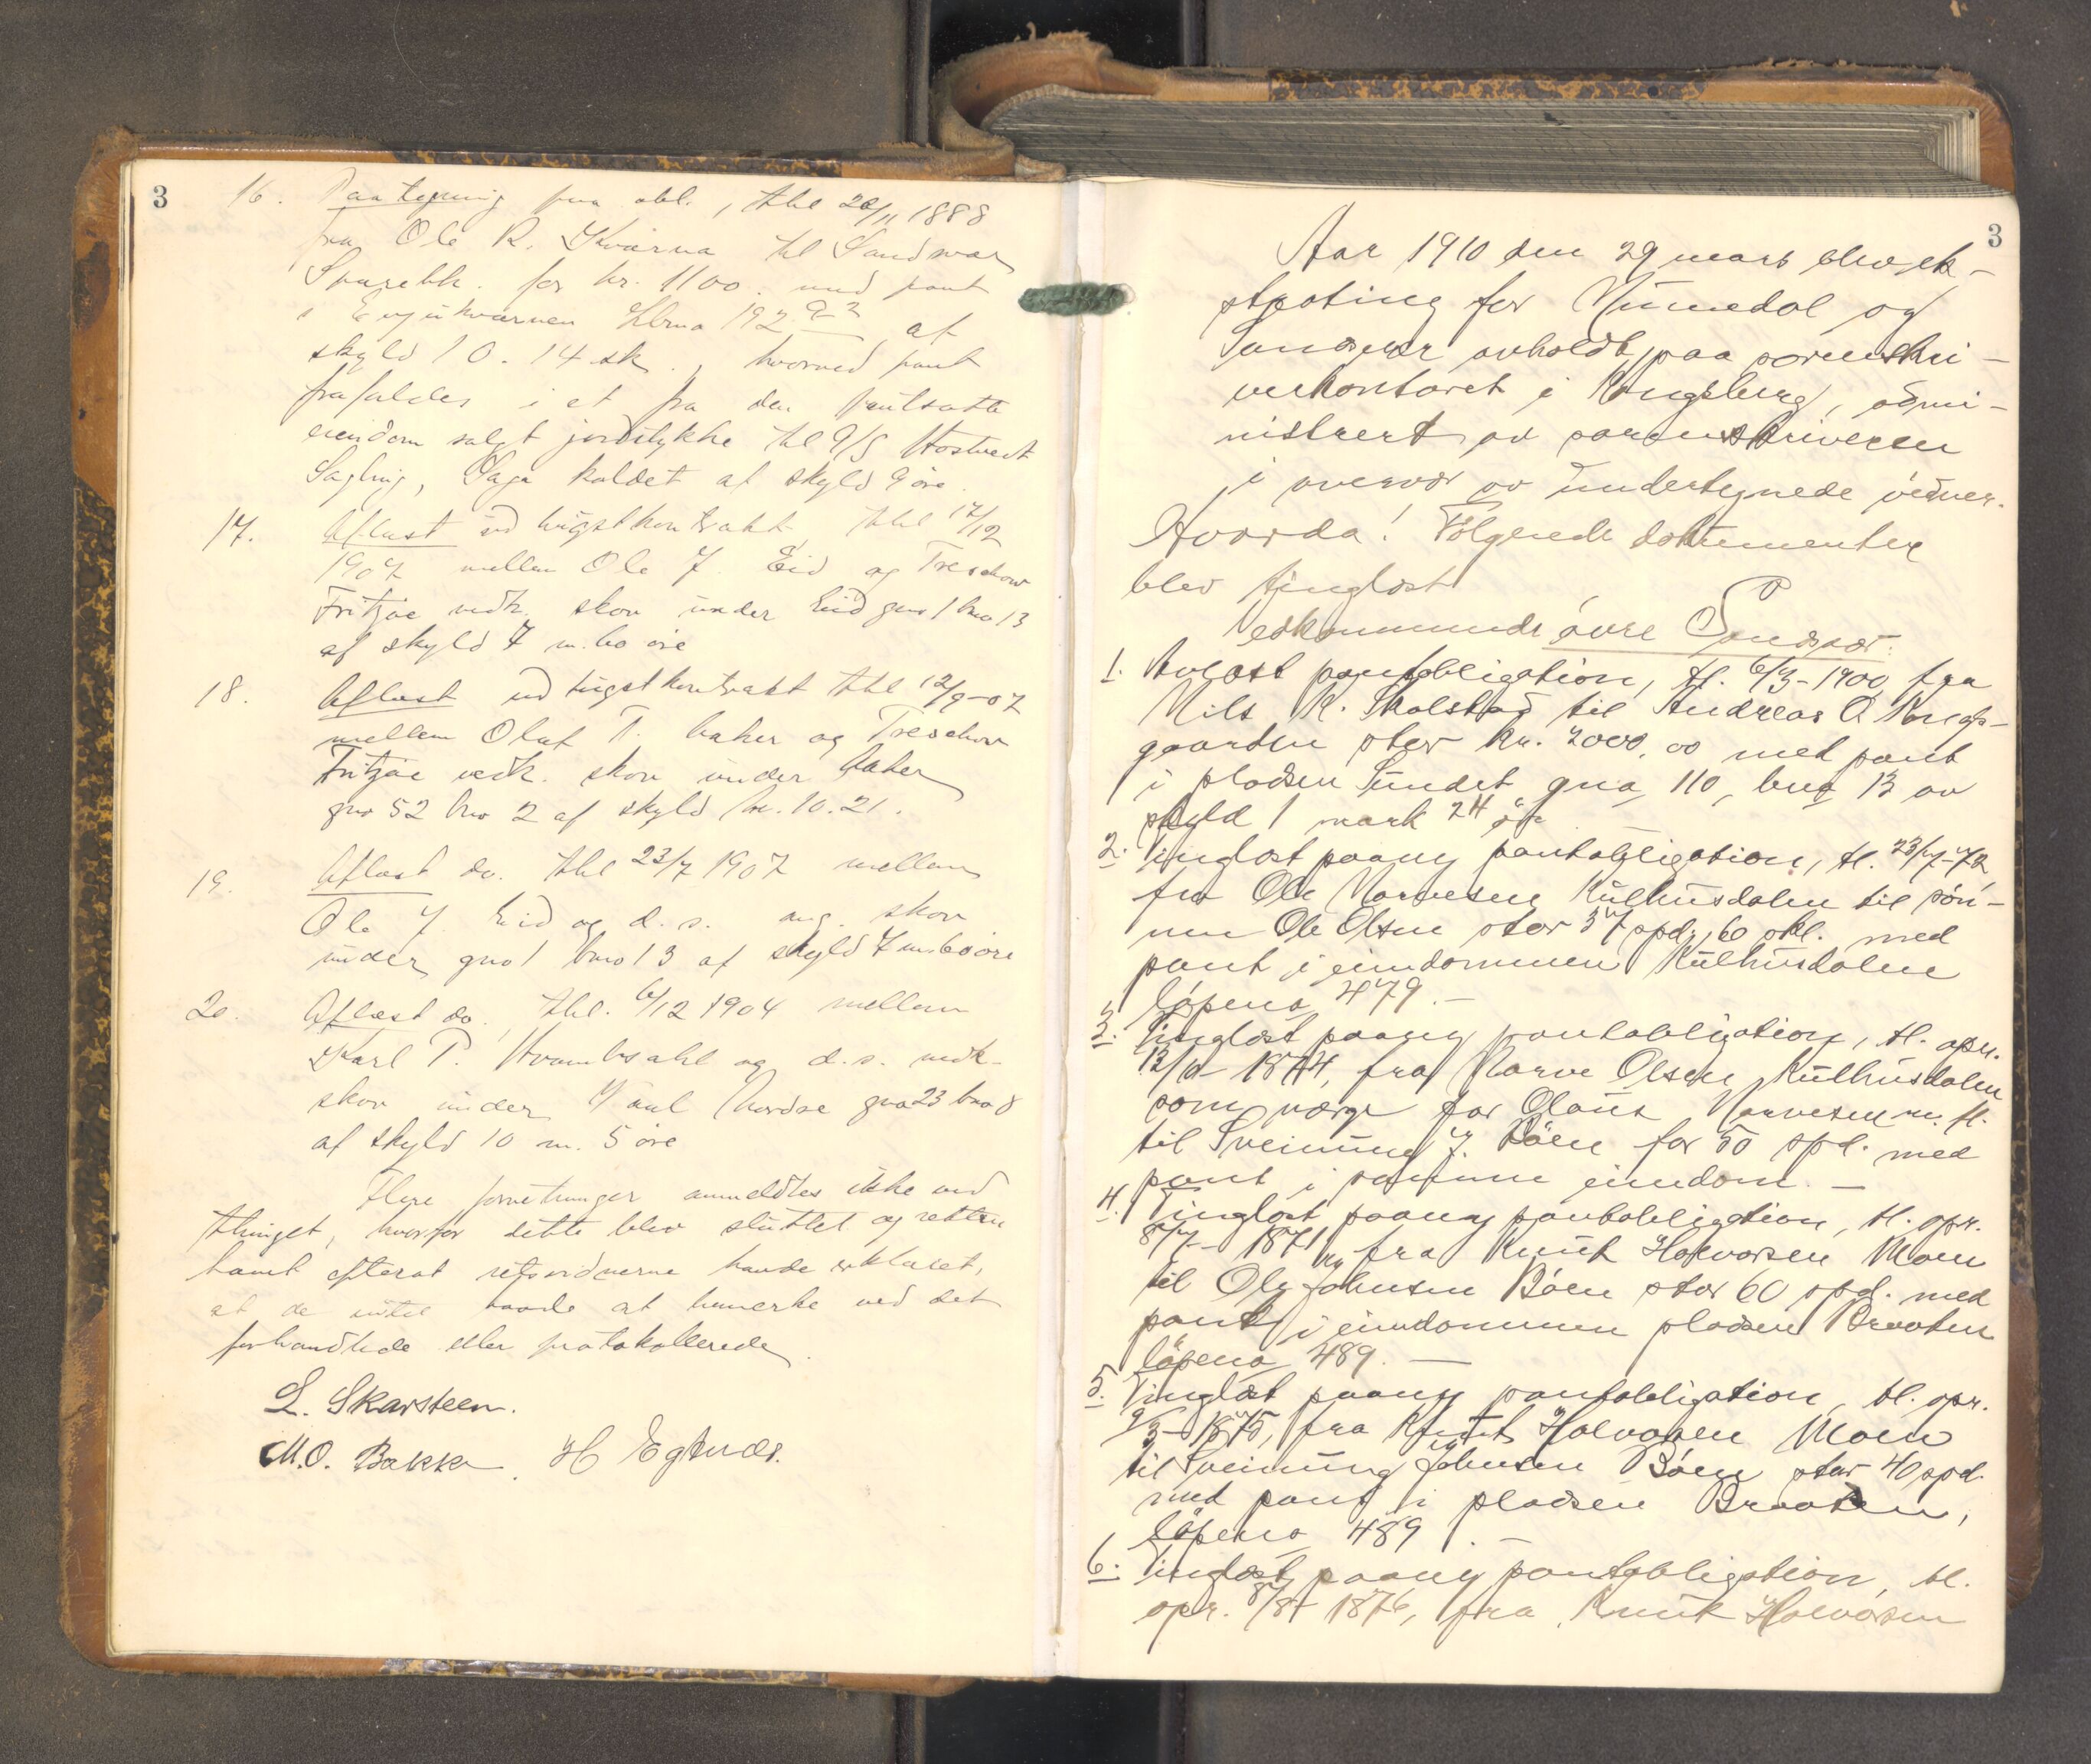 3
16. Paategning paa obl., thl 20/11 1888
fra Ole R. Kværna til Sandsvær
Sparebk. for kr. 1100. med pant
i Engjukværnen Lbno 192 a2 af
skyld 1 0. 14 sk., hvorved pant
frafaldes i et fra den pantsatte
eiendom solgt jordstykke til A/S Hostvedt
Sagbrug, Saga kaldet af skyld 9 øre.
17. Aflæst ud hugstkontrakt thl 17/12
1907 mellem Ole J. Eid og Treschow
Fritzøe vedk. skov under Eid gno 1 bno 13
af skyld 7 m. 60 øre
18. Aflæst ud hugstkontrakt thl 12/9-07
mellem Oluf T. Aaker og Treschow
Fritzøe vedk. skov under Aaker
gno 52 bno 2 af skyld m. 10.21.
19. Aflæst do. thl 23/7 1907 mellem
Ole J. Eid og d. s. ang. skov
under gno 1 bno 13 af skyld 7 m 60 øre
20. Aflæst do. thl. 6/12 1904 mellem
Karl P. Hvambsahl og d. s. vedk.
skov under gno 23 bno 8
af skyld 10 m. 5 øre
Flere forretninger anmeldtes ikke ved
thinget, hvorfor dette blev sluttet og retten
hævet efterat retsvidnerne havde erklæret,
at de intet havde at bemerke ved det
forhandlede eller protokollerede.
L. Skarsteen.
M.O. Bakke. H Egtveds.
3
Aar 1910 den 29 mars blev ek-
strating for Numedal og
Sandsvær avholdt paa sorenskri-
verkontoret i Kongsberg, admi-
nistrert av sorenskriveren
i overvær av undertegnede vidner.
Hvorda! Følgende dokumenter
blev tinglæst
Vedkommende øvre Sandsvær.
1. Avlæst pantobligation, tl. 6/3-1900 fra
Nils K. Skolstad til Andreas O Kongs-
gaarden stor kr. 2000,00 med pant
i pladsen Sundet gno 110, bno 13 av
skyld 1 mark 24 øre
2. Tinglæst paany pantobligation, tl. 23/7-72,
fra Ole Narvesen Kulhusdalen til søn-
nen Ole Olsen stor 37 spd. 60 skl. med
pant i eiendommen Kulhusdalen
løpeno 479.—
3. Tinglæst paany pantobligation, tl. opr.
12/10-1874, fra Narve Olsen Kulhusdalen
som værge for Olaus Narvesen m. fl.
til Sveinung J. Bøen for 50 spd. med
pant i samme eiendom. —
4. Tinglæst paany pantobligation, tl. opr.
8/7-1871, fra Knut Halvorsen Moen
til Ole Johnsen Bøen stor 60 spd. med
pant i eiendommen pladsen Braaten
løpeno 489. —
5. Tinglæst paany pantobligation, tl. opr.
9/3-1875, fra Knut Halvorsen Moen
til Sveinung Johnsen Bøen stor 40 spd.
med pant i pladsen Braaten,
løpeno 489. —
6. Tinglæst paany pantobligation, tl.
opr. 8/8-1876, fra Knut Halvorsen